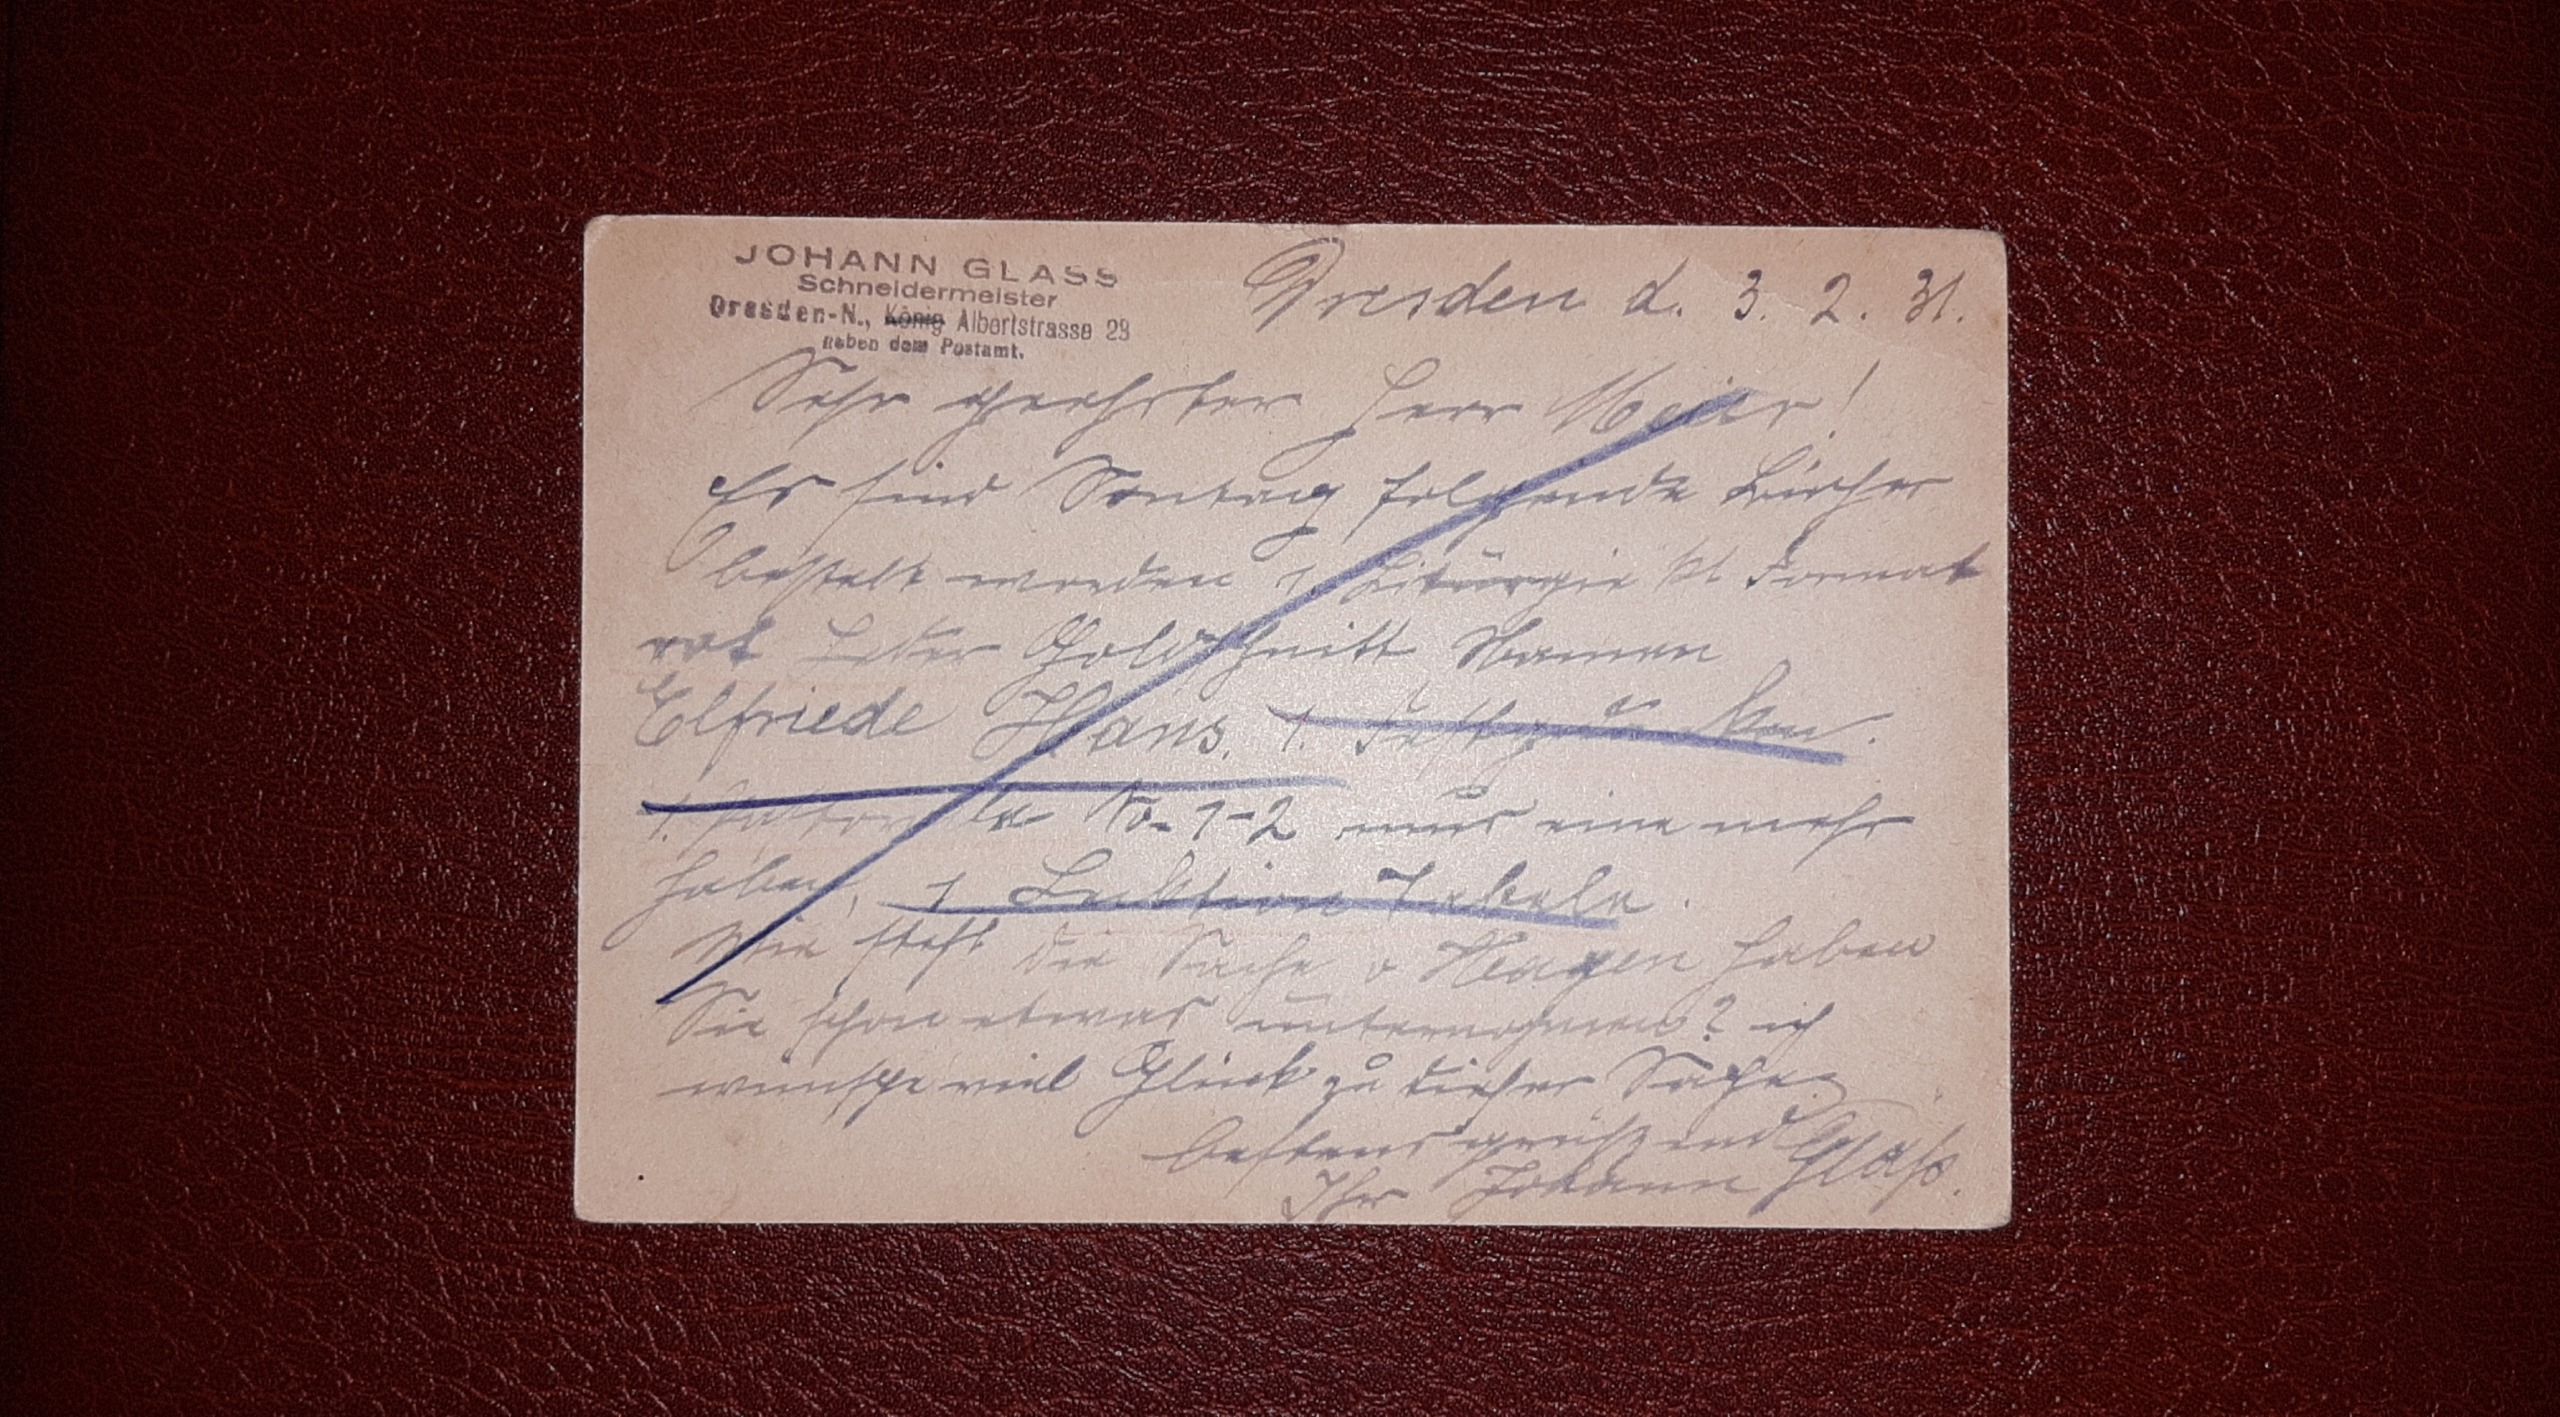 JOHANN GLASS
Schneidermeister
Dresden-N., König Albertstrasse 29
neben dem Postamt.
Dresden d. 3. 2. 31.
Sehr geehrter Herr Meier!
Es sind Sontag folgende Bücher
bestelt worden 1 Liturgie kl Format
rot Leder Goldschnitt Namen
Elfriede Hans. 1.
1. No. 1-2 mus eine mehr
haben, 1 Lektion Tabele.
Wie steht die Sache v Hagen haben
Sie schon etwas unternomen? ich
wünsche viel Glück zu dieser Sache
bestens grüssend
Ihr Johann Glaß.